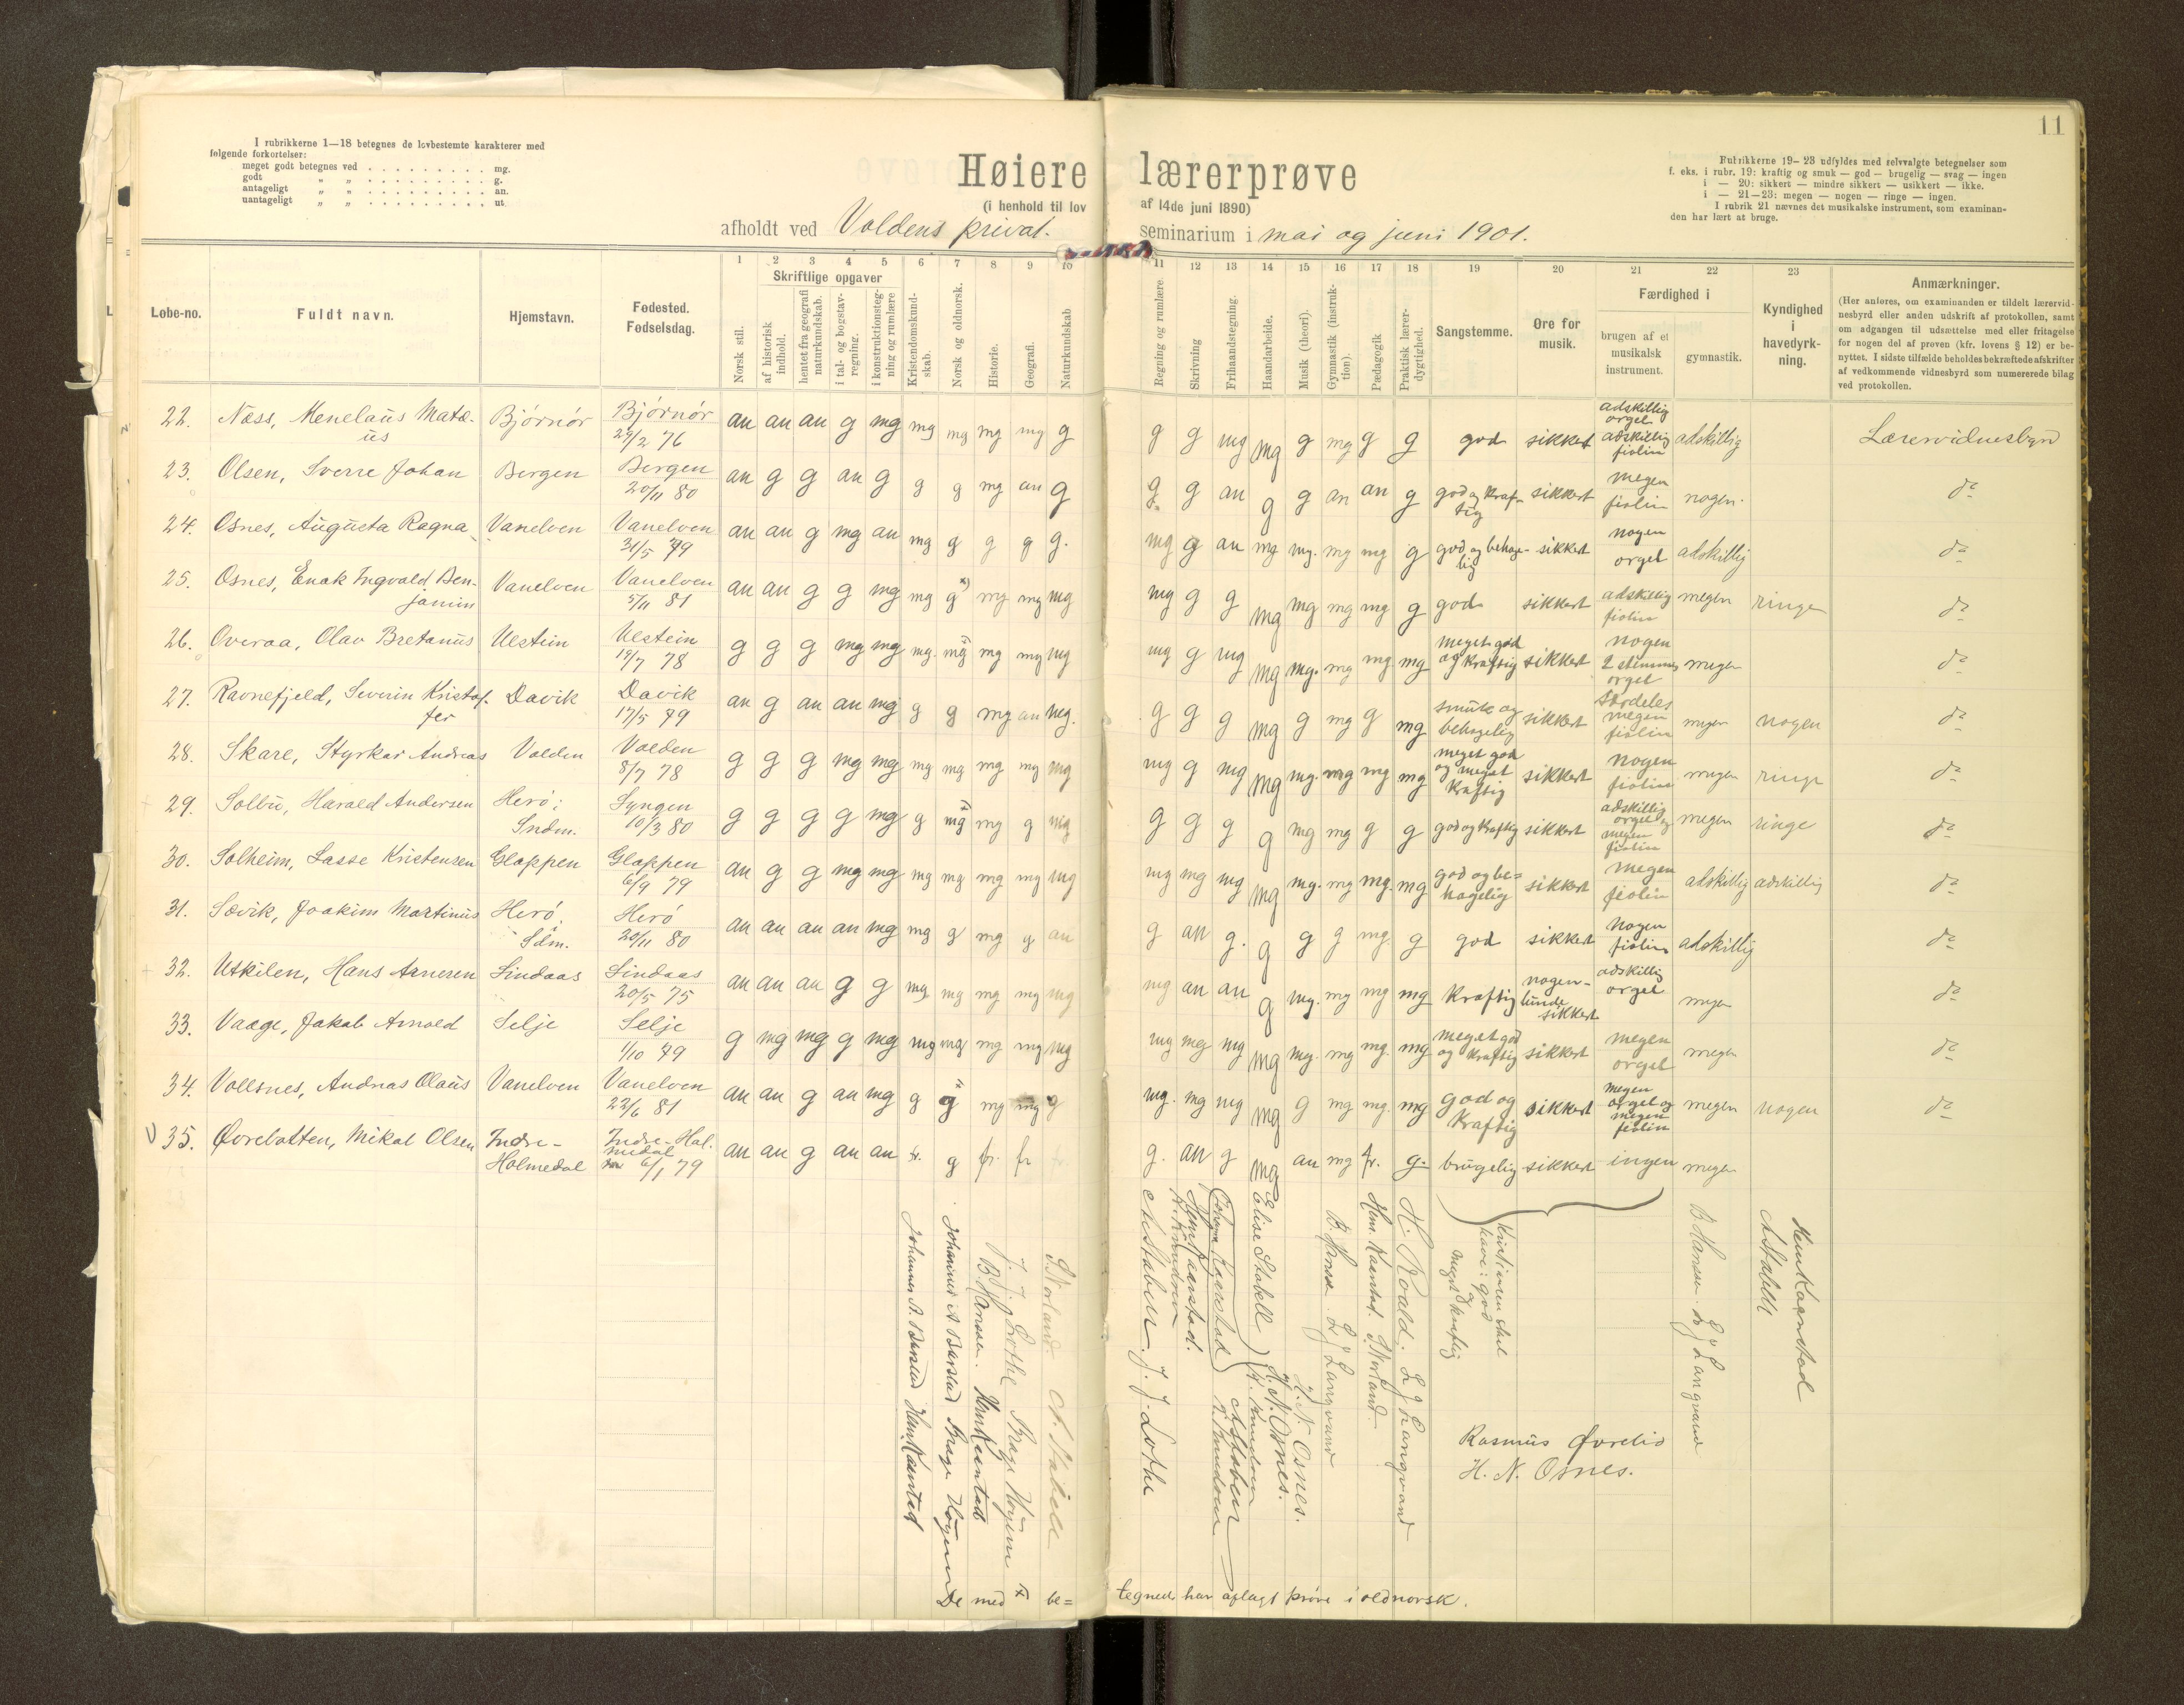 11
I rubrikkerne 1—18 betegnes de lovbestemte karakterer med
følgende forkortelser:
meget godt betegnes ved . . . . . . . . . . mg.
godt „ „ . . . . . . . . . . g.
antageligt „ „ . . . . . . . . . . an.
uantageligt „ „ . . . . . . . . . . ut.
Høiere lærerprøve
(i henhold til lov af 14de juni 1890)
afholdt ved Voldens privat. seminarium i mai og juni 1901.
Rubrikkerne 19—23 udfyldes med selvvalgte betegnelser som
f. eks. i rubr. 19: kraftig og smuk — god — brugelig — svag — ingen
i — 20: sikkert — mindre sikkert — usikkert — ikke.
i — 21—23: megen — nogen — ringe — ingen.
I rubrik 21 nævnes det musikalske instrument, som examinan-
den har lært at bruge.
1 2 3 4 5 6 7 8 9 10 11 12 13 14 15 16 17 18 19 20 21 22 23
Løbe-no.
Fuldt navn.
Hjemstavn.
Fødested.
Fødselsdag.
Skriftlige opgaver
Norsk stil.
af historisk indhold.
hentet fra geografi naturkundskab.
i tal- og bogstav-regning.
i konstruktionsteg-ning og rumlære
Kristendomskund-skab.
Norsk og oldnorsk.
Historie.
Geografi.
Naturkundskab
Regning og rumlære
Skrivning
Frihaandstegning.
Haandarbeide.
Musik (theori).
Gymnastik (instruk-tion).
Pædagogik
Praktisk lærer-dygtighed.
Sangstemme.
Øre for musik.
Færdighed i
brugen af et musikalsk instrument.
gymnastik.
Kyndighed i havedyrk-ning.
Anmærkninger.
(Her anføres, om examinanden er tildelt lærervid-
nesbyrd eller anden udskrift af protokollen, samt
om adgangen til udsættelse med eller fritagelse
for nogen del af prøven (kfr. lovens § 12) er be-
nyttet. I sidste tilfælde beholdes bekræftede afskrifter
af vedkommende vidnesbyrd som nummererede bilag
ved protokollen.
22. Næss, Menelaüs Matæ-üs Bjórnór Bjórnór 29/2 76 an an an g mg mg mg mg mg g g g mg mg g mg g g god sikkert adskillig orgel adskillig fiolin adskillig Lærervidnesbyrd
23. Olsen, Sverre Johan Bergen Bergen 20/11 80 an g g an g g g mg an g g g an g g an an g god og kraf-tig sikkert megen fiolin nogen. do
24. Osnes, Augusta Ragna Vanelven Vanelven 31/5 79 an an g mg an mg g g g g. mg g an mg mg. mg mg g god og behage-lig sikkert nogen orgel adskillig do
25. Osnes, Enok Ingvald Ben-jamin Vanelven Vanelven 5/11 81 an an g g mg mg g x) mg mg mg mg g g mg mg mg mg g god sikkert adskillig fiolin megen ringe do
26. Overaa, Olav Bretanüs Ulstein Ulstein 19/7 78 g g g mg mg mg. mg mg mg mg mg g mg mg mg. mg mg mg meget god og kraftig sikkert nogen 2 stemmig orgel megen do
27. Ravnefjeld, Severin Kristof-fer Davik Davik 17/5 79 an g an an mg g g mg an mg. g g g mg g mg g mg smuk og behagelig sikkert særdeles megen fiolin megen nogen do
28. Skare, Styrkar Andreas Volden Volden 8/7 78 g g g mg mg mg mg mg mg mg mg g mg mg mg. mg mg mg meget god og meget kraftig sikkert nogen fiolin megen ringe do
29. Solbü, Harald Andersen Heró i Sndm. Lyngen 10/3 80 g g g g mg g mg x mg g mg g g g g mg mg g g god og kraftig sikkert adskillig orgel og megen fiolin megen ringe do
30. Solheim, Lasse Kristensen Gloppen Gloppen 6/9 79 an g g mg mg mg mg mg mg mg mg mg mg mg mg. mg mg. mg god og be-hagelig sikkert megen fiolin adskillig adskillig do
31. Sævik, Joakim Martinüs Heró, Sdm. Heró 20/11 80 an an an an mg mg g mg g an g an g. g g g mg. g god sikkert nogen fiolin adskillig do
32. Utkilen, Hans Arnesen Lindaas Lindaas 20/5 75 an an an g g mg mg mg mg mg mg an an g mg. mg mg mg kraftig nogen-lunde sikkert adskillig orgel megen do
33. Vaage, Jakob Arnold Selje Selje 1/10 79 g mg mg g mg mg mg mg mg mg mg mg mg mg mg. mg mg. mg meget god og kraftig sikkert megen orgel megen do
34. Vollsnes, Andreas Olaüs Vanelven Vanelven 22/6 81 an an g an mg g g mg mg g mg. mg mg mg g mg mg. mg god og kraftig sikkert megen orgel og megen fiolin megen nogen do
35. Øvrebotten, Mikal Olsen Indre-Holmedal Indre-Hol-medal 6/1 79 an an g an an fr. g fr. fr g. an g mg an mg fr. g. brugelig sikkert ingen megen
Henr Kaarstad
B. Hansen.
J. J. Lothe
Elise Stabell
H. N. Osnes.
H. Roald. L J Langvand
B Hansen. L J Langvand
Rasmüs Øvrelid
H. N. Osnes.
De med x be= tegnede har aflagt prøve i oldnorsk.